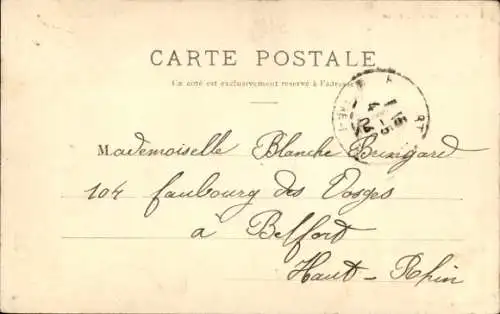 CARTE POSTALE
Ce côté est exclusivement réservé à l'adresse
Mademoiselle Blanche
104 faubourg des Vosges
à Belfort
Haut-Rhin